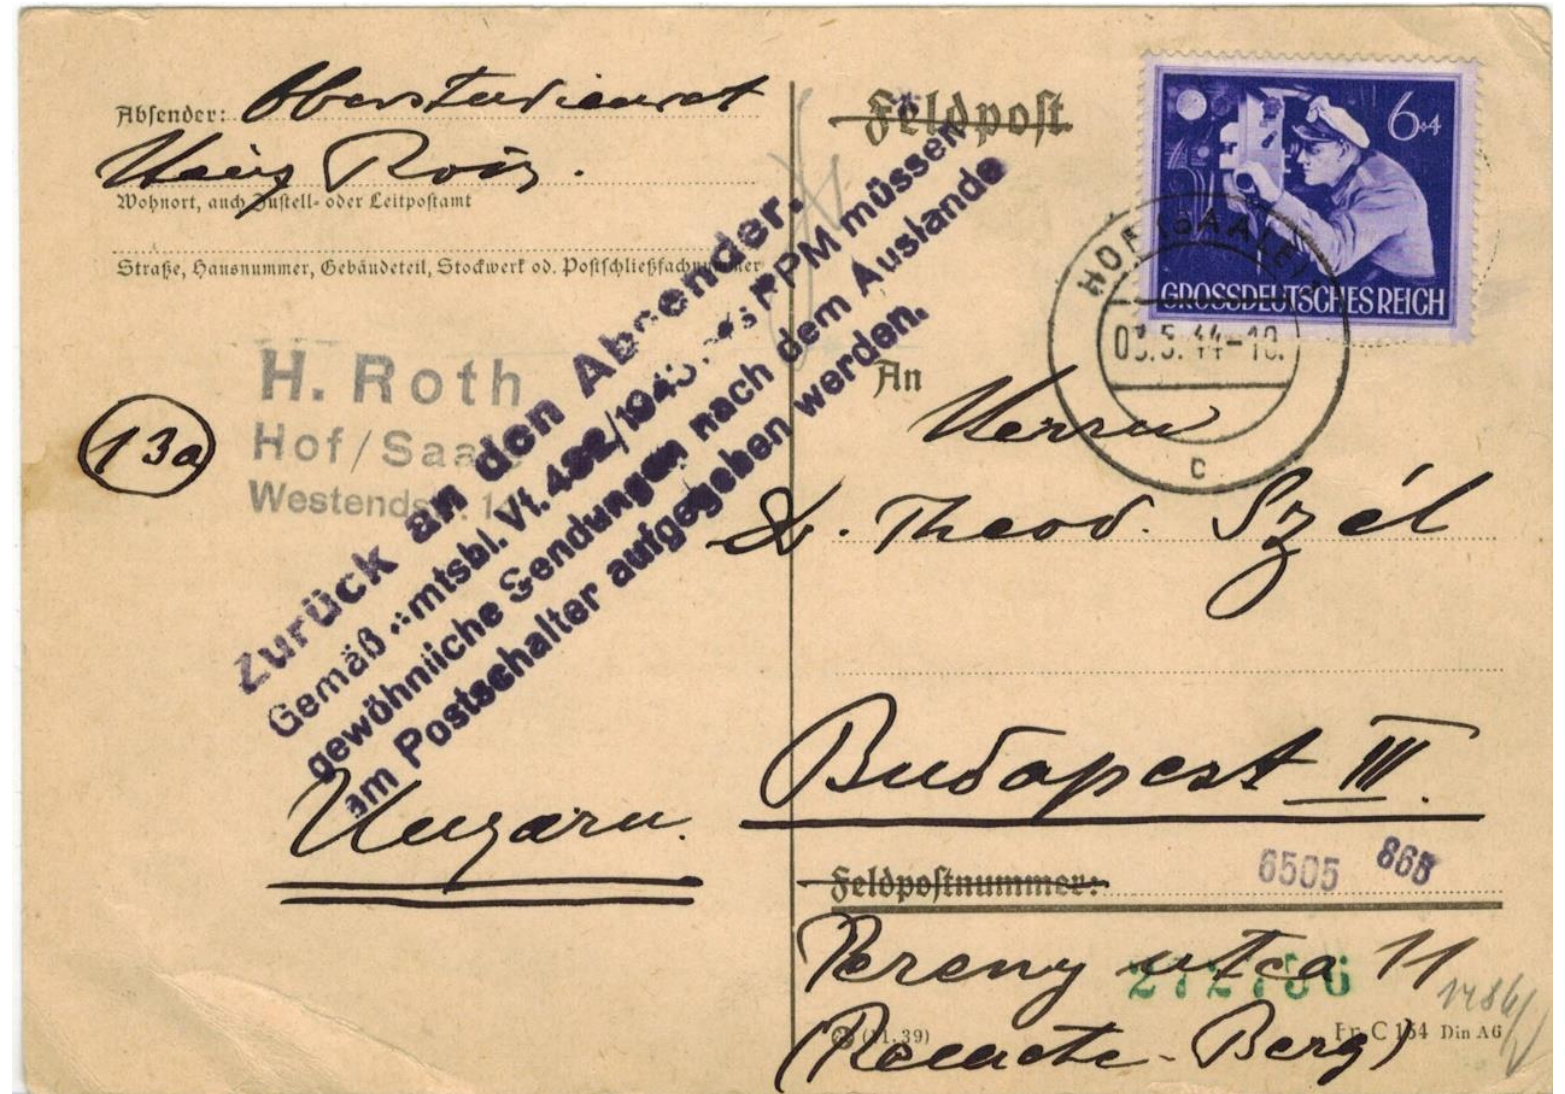 Absender: Oberstudienrat
Heinz Roth.
Wohnort, auch Zustell- oder Leitpostamt
Straße, Hausnummer, Gebäudeteil, Stockwerk od. Postschließfachnummer
H. Roth
Hof/Saale
Westendstr. 14
13a
Zurück an den Absender.
Gemäß Amtsbl. Vf. 482/1943 des RPM müssen
gewöhnliche Sendungen nach dem Auslande
am Postschalter aufgegeben werden.
Ungarn.
Feldpost
6+4
GROSSDEUTSCHES REICH
HOF (SAALE)
03.5.44-10.
c
An
Herrn
Dr. Theod. Szél
Budapest III.
6505 868
Feldpostnummer:
Bereny utca 11
272756
1486
(Remete-Berg)
(11. 39)
Fr C 154 Din A6